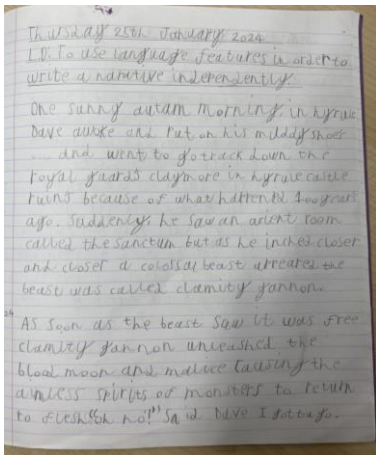 Thursday 25th January 2024
L.O. To use language features in order to
write a narrative independently
One sunny autam morning, in hyrule
Dave awoke and put on his muddy shoes
and went to go track down the
royal guards claymore in hyrule castle
ruins because of what happened 100 years
ago. Suddenly, he saw an arient room
called the sanctum but as he inched closer
and closer a colossal beast appeared the
beast was called clamity gannon.
As soon as the beast saw it was free
clamity gannon unleashed the
blood moon and malice causing the
aimless spirits of monsters to return
to flesh "oh no!" said Dave I gotta go.